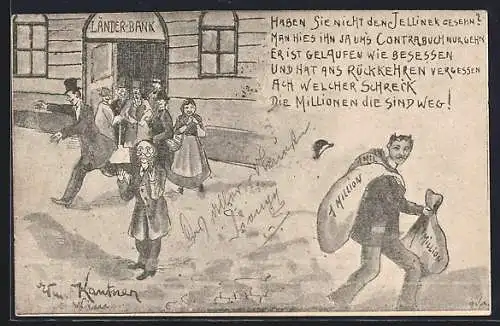 LÄNDER-BANK
HABEN SIE NICHT DEN JELLINEK GESEHN?
MAN HIES IHN JA UMS CONTRABUCH NUR GEHN
ER IST GELAUFEN WIE BESESSEN
UND HAT ANS RÜCKKEHREN VERGESSEN
ACH WELCHER SCHRECK
DIE MILLIONEN DIE SIND WEG!
1 MILLION
1 MILLION
Kantner
Wien